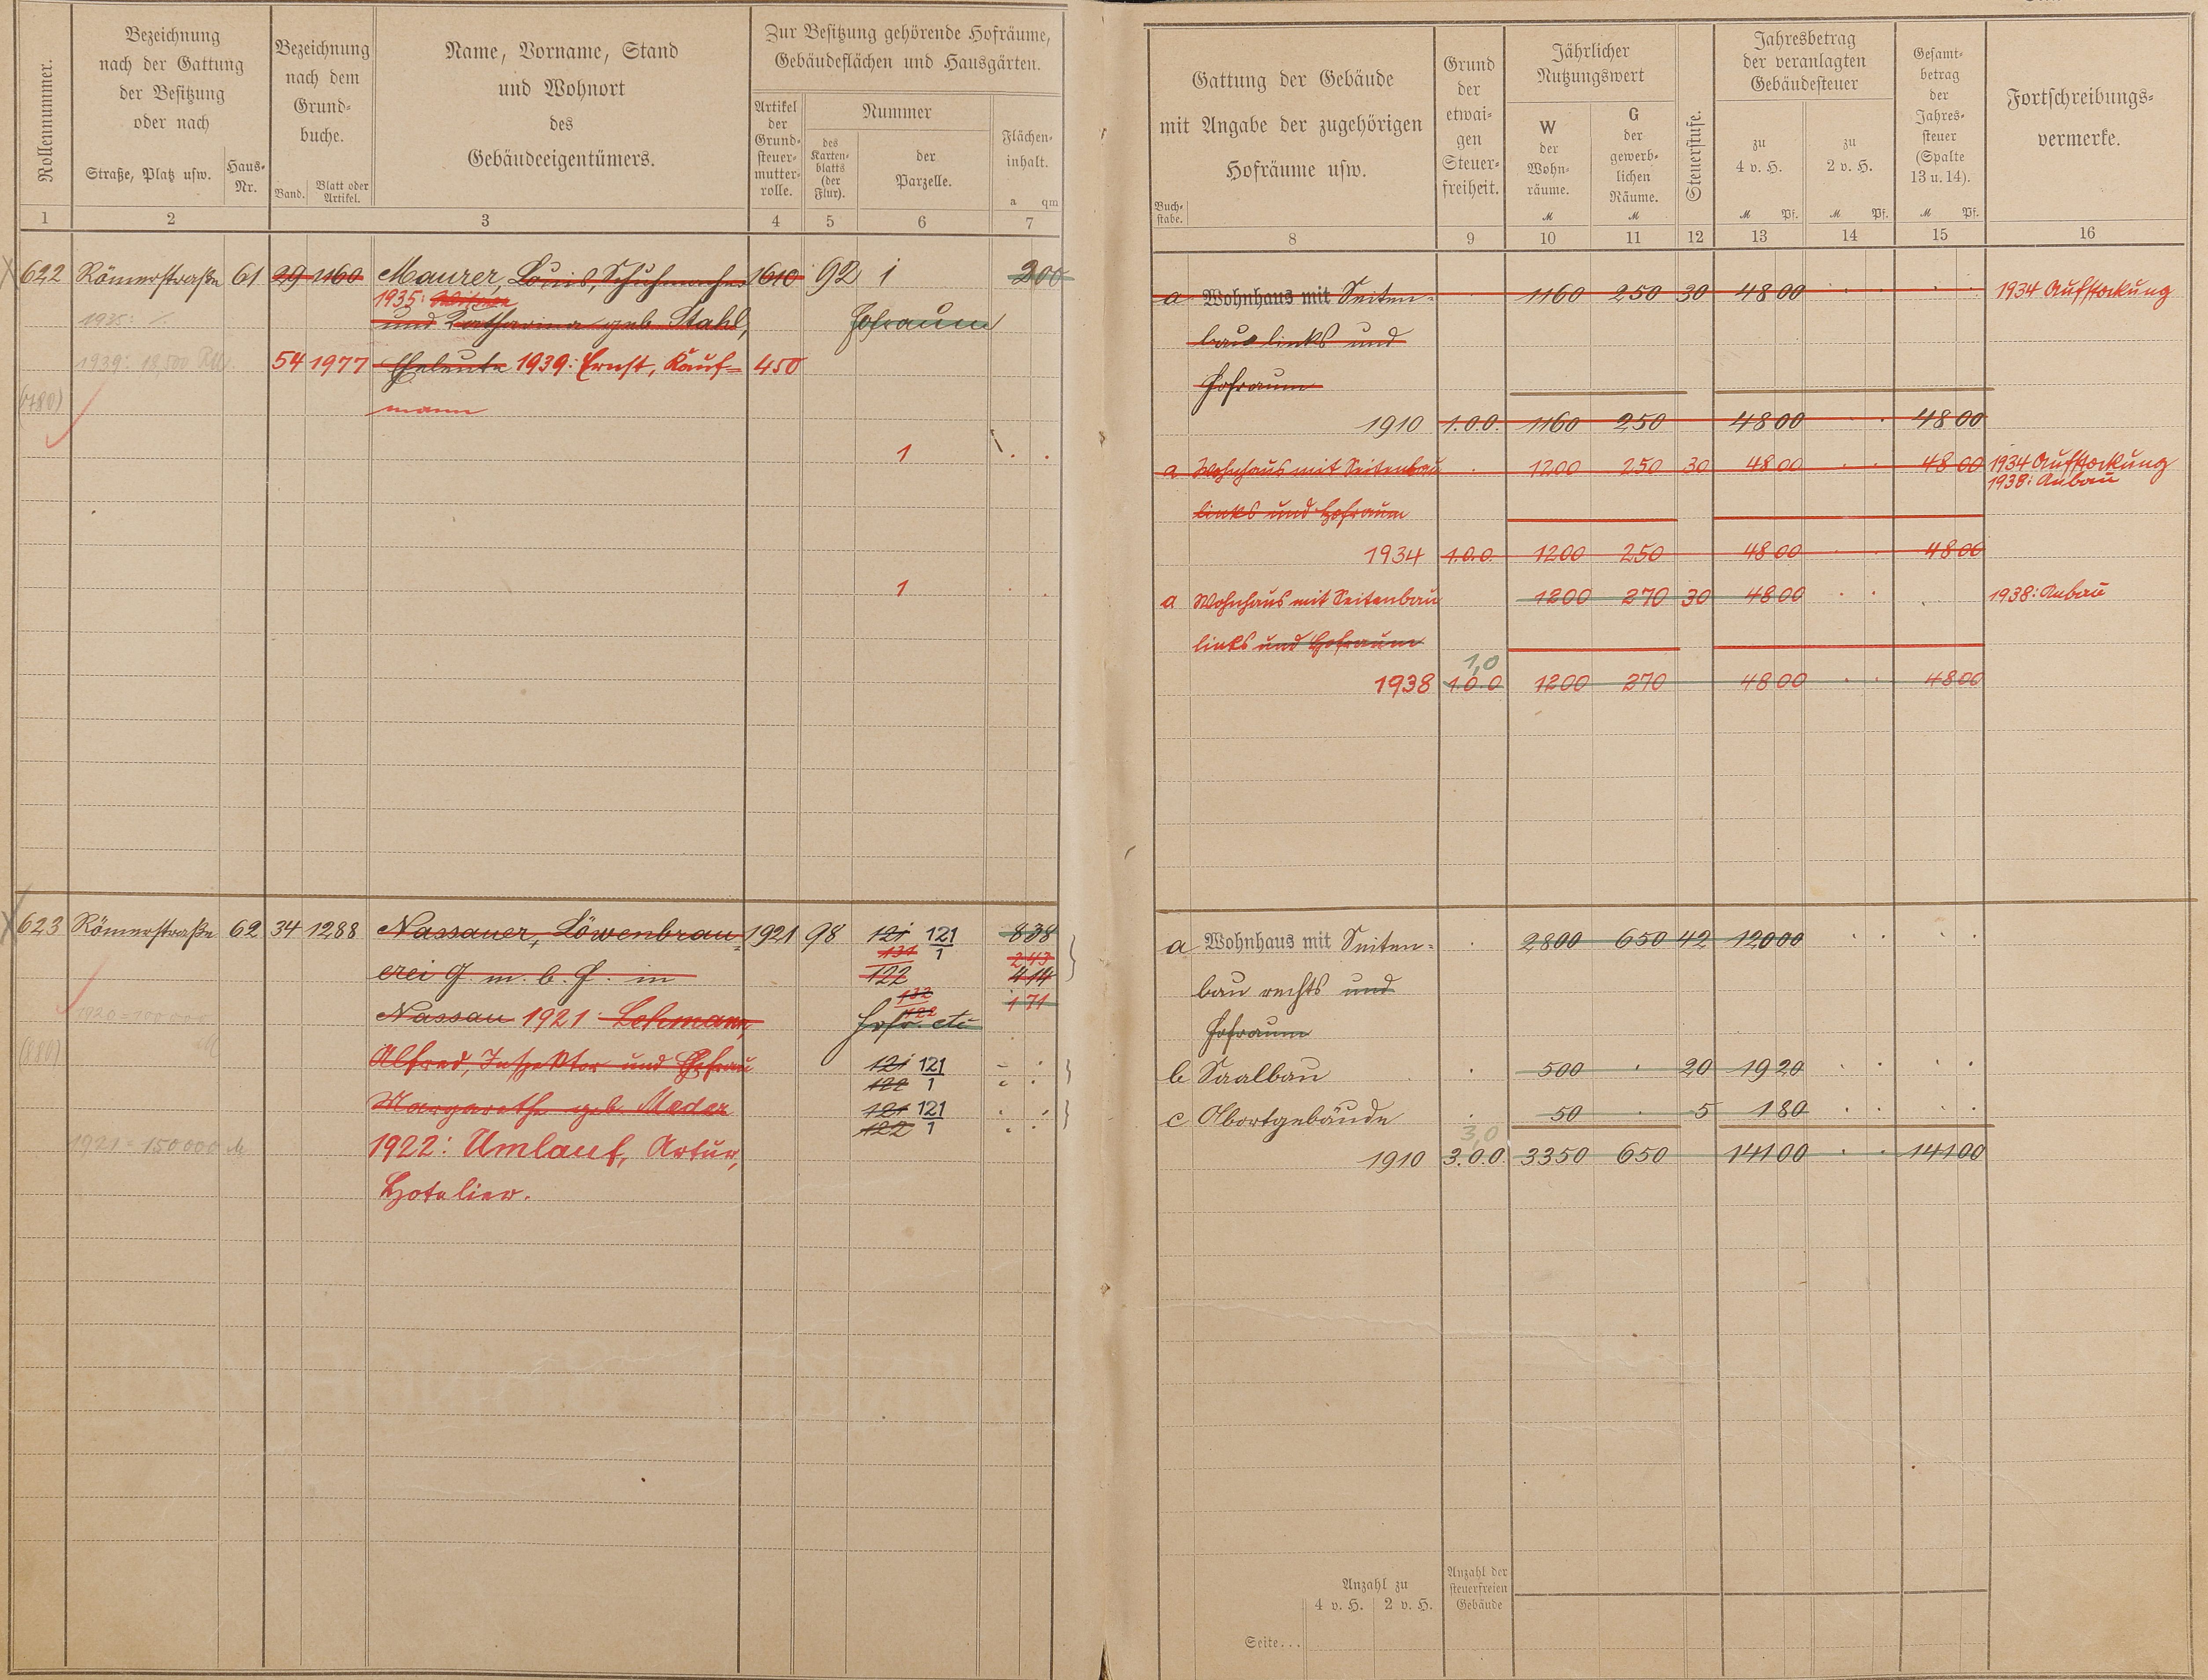 Rollennummer.
Bezeichnung
nach der Gattung
der Besitzung
oder nach
Straße, Platz usw.
Haus-
Nr.
Bezeichnung
nach dem
Grund-
buche.
Band.
Blatt oder
Artikel.
Name, Vorname, Stand
und Wohnort
des
Gebäudeeigentümers.
Zur Besitzung gehörende Hofräume,
Gebäudeflächen und Hausgärten.
Artikel
der
Grund-
steuer-
mutter-
rolle.
Nummer
des
Karten-
blatts
(der
Flur).
der
Parzelle.
Flächen-
inhalt.
a qm
1 2 3 4 5 6 7
622 Römerstraße 61 29 1160 Maurer, Louis, Schuhmacher 1610 92 1 200
1935: Witwe
1935: und Katharina geb. Stahl, Hofraum
1939: 18,500 RM. 54 1977 Eheleute 1939: Ernst, Kauf= 450
mann
1
1
623 Römerstraße 62 34 1288 Nassauer, Löwenbrau= 1921 98 121 121/1 838
131 243
erei G. m. b. H. in 122 414
132 171
Nassau 1921: Lehmann, 122 Hofr. etc
(880)
Alfred, Inspektor und Ehefrau 121 121/1
122
Margarethe geb. Meder 121 121/1
122
1921 = 150 000 M 1922: Umlauf, Artur,
Hotelier.
Gattung der Gebäude
mit Angabe der zugehörigen
Hofräume usw.
Buch-
stabe.
Grund
der
etwai-
gen
Steuer-
freiheit.
Jährlicher
Nutzungswert
W
der
Wohn-
räume.
M
G
der
gewerb-
lichen
Räume.
M
Steuerstufe.
Jahresbetrag
der veranlagten
Gebäudesteuer
zu
4 v. H.
M Pf.
zu
2 v. H.
M Pf.
Gesamt-
betrag
der
Jahres-
steuer
(Spalte
13 u. 14).
M Pf.
Fortschreibungs-
vermerke.
8 9 10 11 12 13 14 15 16
a Wohnhaus mit Seiten= 1160 250 30 48 00 1934 Aufstockung
bau links und
Hofraum
1910 1.0.0. 1160 250 48 00 48 00
a Wohnhaus mit Seitenbau 1200 250 30 48 00 48 00 1934 Aufstockung
1938: Anbau
links und Hofraum
1934 1.0.0. 1200 250 48 00 48 00
a Wohnhaus mit Seitenbau 1200 270 30 48 00 1938: Anbau
links und Hofraum
1,0
1938 1.0.0 1200 270 48 00 48 00
a Wohnhaus mit Seiten= 2800 650 42 120 00
bau rechts und
Hofraum
b Saalbau 500 20 19 20
c Abortgebäude 50 5 1 80
3,0
1910 3.0.0. 3350 650 141 00 141 00
Anzahl zu
4 v. H. 2 v. H.
Anzahl der
steuerfreien
Gebäude
Seite...